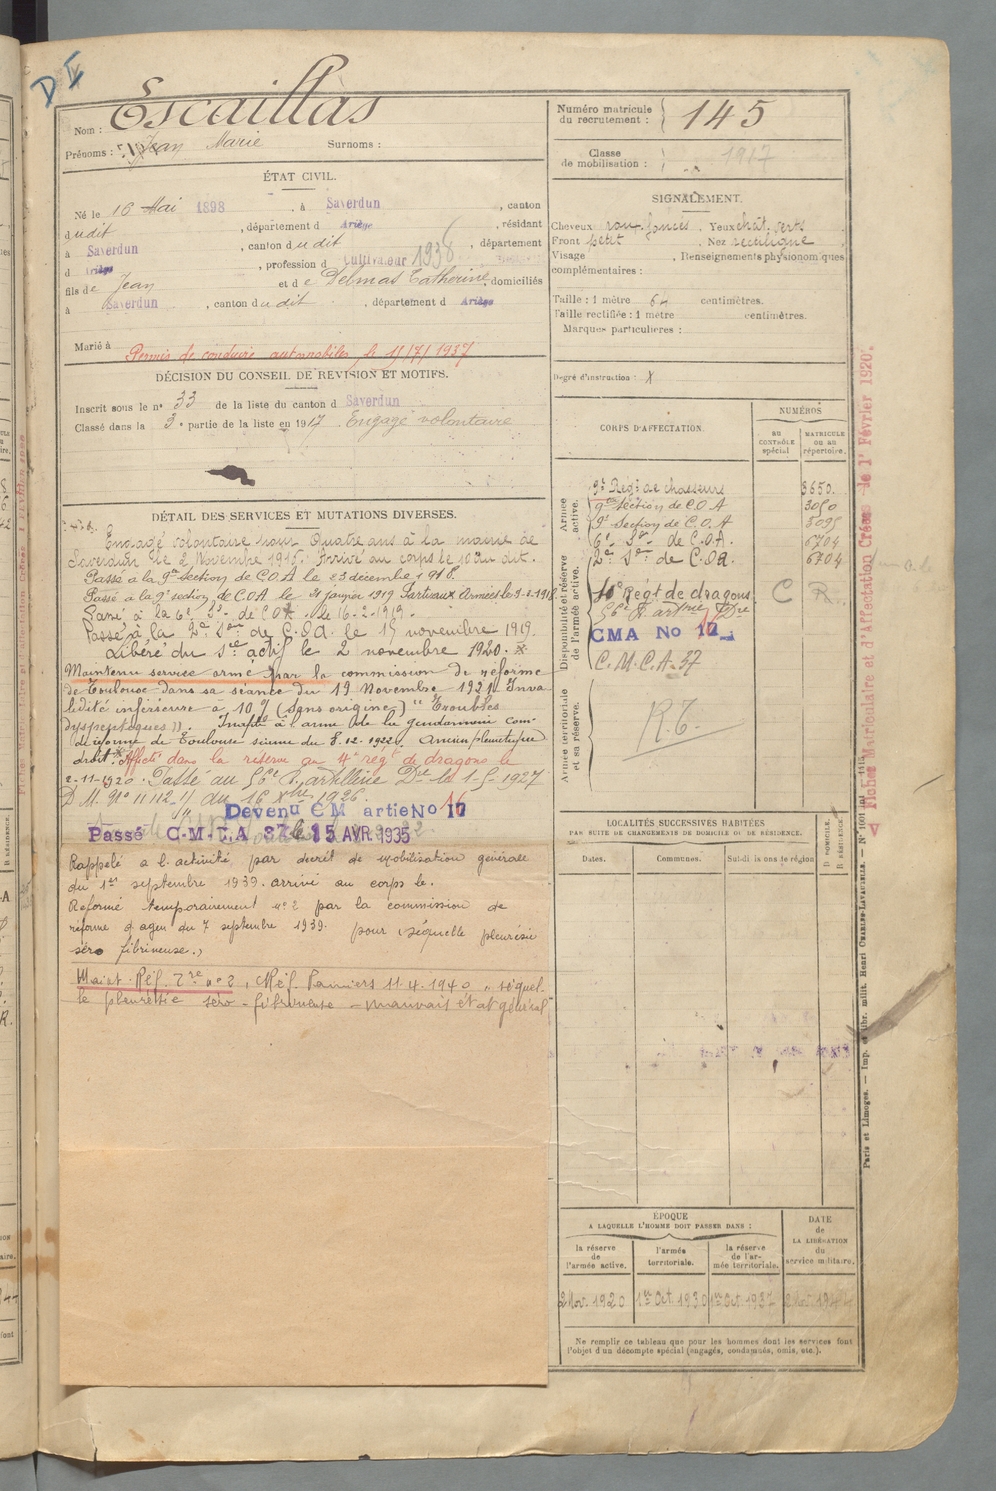 D II
Nom : Escaillas
Prénoms : Jean Marie Surnoms :
Numéro matricule du recrutement : 145
Classe de mobilisation : 1917
ÉTAT CIVIL.
Né le 16 Mai 1898 , à Saverdun , canton
dudit , département d Ariège , résidant
à Saverdun , canton dudit , département
d Ariège , profession d Cultivateur 1938
fils de Jean et de Delmas Catherine, domiciliés
à Saverdun , canton dudit , département d Ariège
Marié à
Permis de conduire automobiles le 1/7/1937
DÉCISION DU CONSEIL DE REVISION ET MOTIFS.
Inscrit sous le n° 33 de la liste du canton d Saverdun
Classé dans la 3e partie de la liste en 1917 Engagé volontaire
DÉTAIL DES SERVICES ET MUTATIONS DIVERSES.
Engagé volontaire pour Quatre ans à la mairie de
Saverdun le 2 Novembre 1916. Arrivé au corps le 10 du dit.
Passé à la 9e section de C.O.A le 23 décembre 1918.
Passé à la 9e section de C.O.A le 21 janvier 1919
Passé à la 6e Son de C.O.A. le 16-2-1919.
Passé à la 2e Son de C.O.A. le 15 novembre 1919.
Libéré du sce actif le 2 novembre 1920.
Maintenu service armé par la commission de réforme
de Toulouse dans sa séance du 19 Novembre 1921 Inva
lidité inférieure à 10% (Sans origine) " Troubles
dyspeptiques ". Inapte à l'arme de la gendarmerie Com
de réforme de Toulouse séance du 8.12.1922. Ancien pleurétique
droit. Affecté dans la réserve au 4e régt de dragons le
2-11-1920. Passé au 56e R. artillerie Dre le 1-5-1927
D.M. N° 11112 du 16 Xbre 1926.
Devenu CM artie No 16
Passé C-M-T,A 37 le 15 AVR 1935
Rappelé à l'activité, par decret de mobilisation générale
du 1er septembre 1939. arrivé au corps le.
Reformé temporairement n° 2 par la commission de
réforme d'agen du 7 septembre 1939. pour séquelle pleurésie
séro fibrineuse.
Maint. Réf. Tre n° 2, Réf. Pamiers 11.4.1940 " séquel.
le pleurésie séro-fibrineuse - mauvais état général
SIGNALEMENT.
Cheveux roux foncés . Yeux chât. verts
Front petit , Nez rectiligne
Visage , Renseignements physionomiques
complémentaires :
Taille : 1 mètre 64 centimètres.
Taille rectifiée : 1 mètre centimètres.
Marques particulières :
Degré d'instruction : X
CORPS D'AFFECTATION.
NUMÉROS
AU CONTRÔLE spécial
MATRICULE OU AU répertoire.
Armée active.
9e Regt de chasseurs 3650.
9e Section de C.O.A 3050
9e Section de C.O.A 3095
6e Son de C.O.A. 6704
2e Son de C.O.A. 6704
Disponibilité et réserve de l'armée active.
4e Régt de dragons C R
56e R. artrie Dre
CMA No 17
C.M.C.A-37
Armée territoriale et sa réserve.
R.T.
LOCALITÉS SUCCESSIVES HABITÉES
PAR SUITE DE CHANGEMENTS DE DOMICILE OU DE RÉSIDENCE.
Dates. Communes. Subdivisions de région
D DOMICILE. R RÉSIDENCE.
ÉPOQUE
A LAQUELLE L'HOMME DOIT PASSER DANS :
la réserve de l'armée active.
l'armée territoriale.
la réserve de l'armée territoriale.
DATE de LA LIBÉRATION du service militaire.
2 Nov. 1920 1er Oct. 1930 1er Oct. 1937
Ne remplir ce tableau que pour les hommes dont les services font
l'objet d'un décompte spécial (engagés, condamnés, omis, etc.).
Fiches Matriculaire et d'Affectation Créées le 1r Février 1920.
Paris et Limoges. — Imp. et libr. milit. Henri CHARLES-LAVAUZELLE. — N° 1001